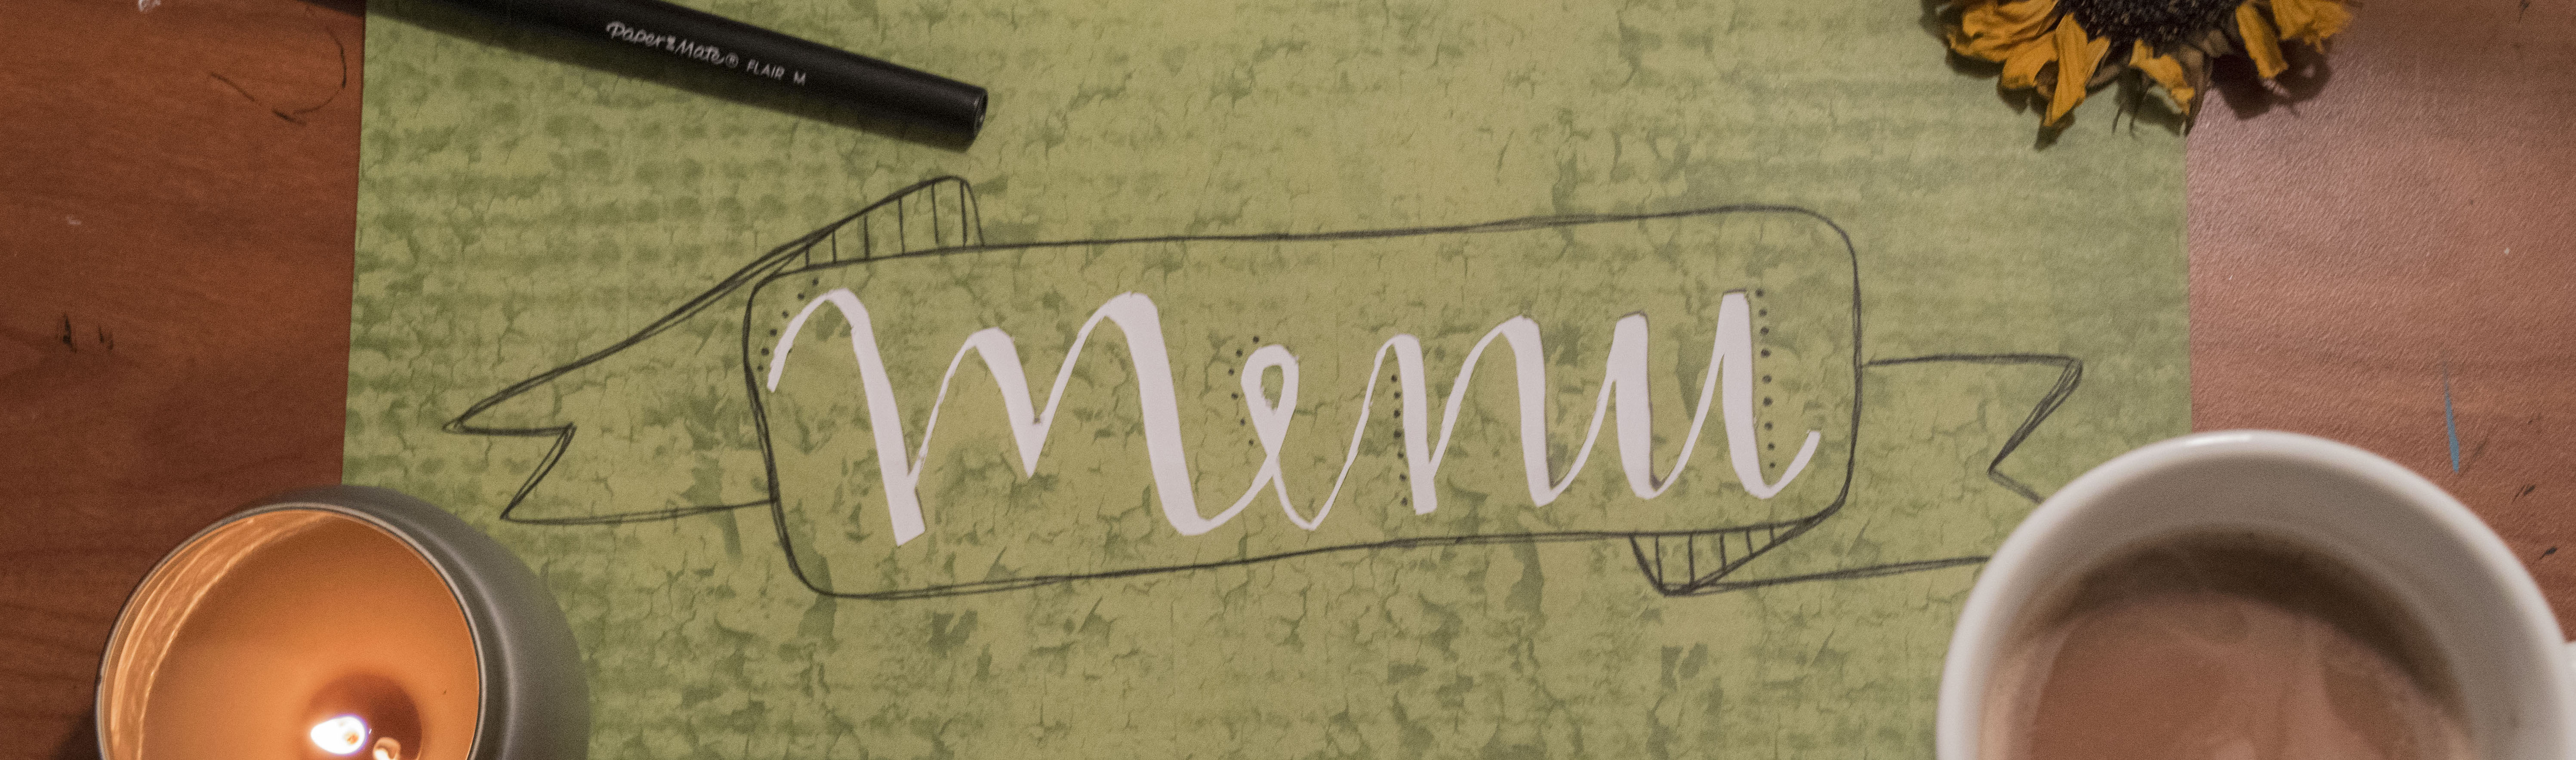 Paper Mate® FLAIR M
Menu